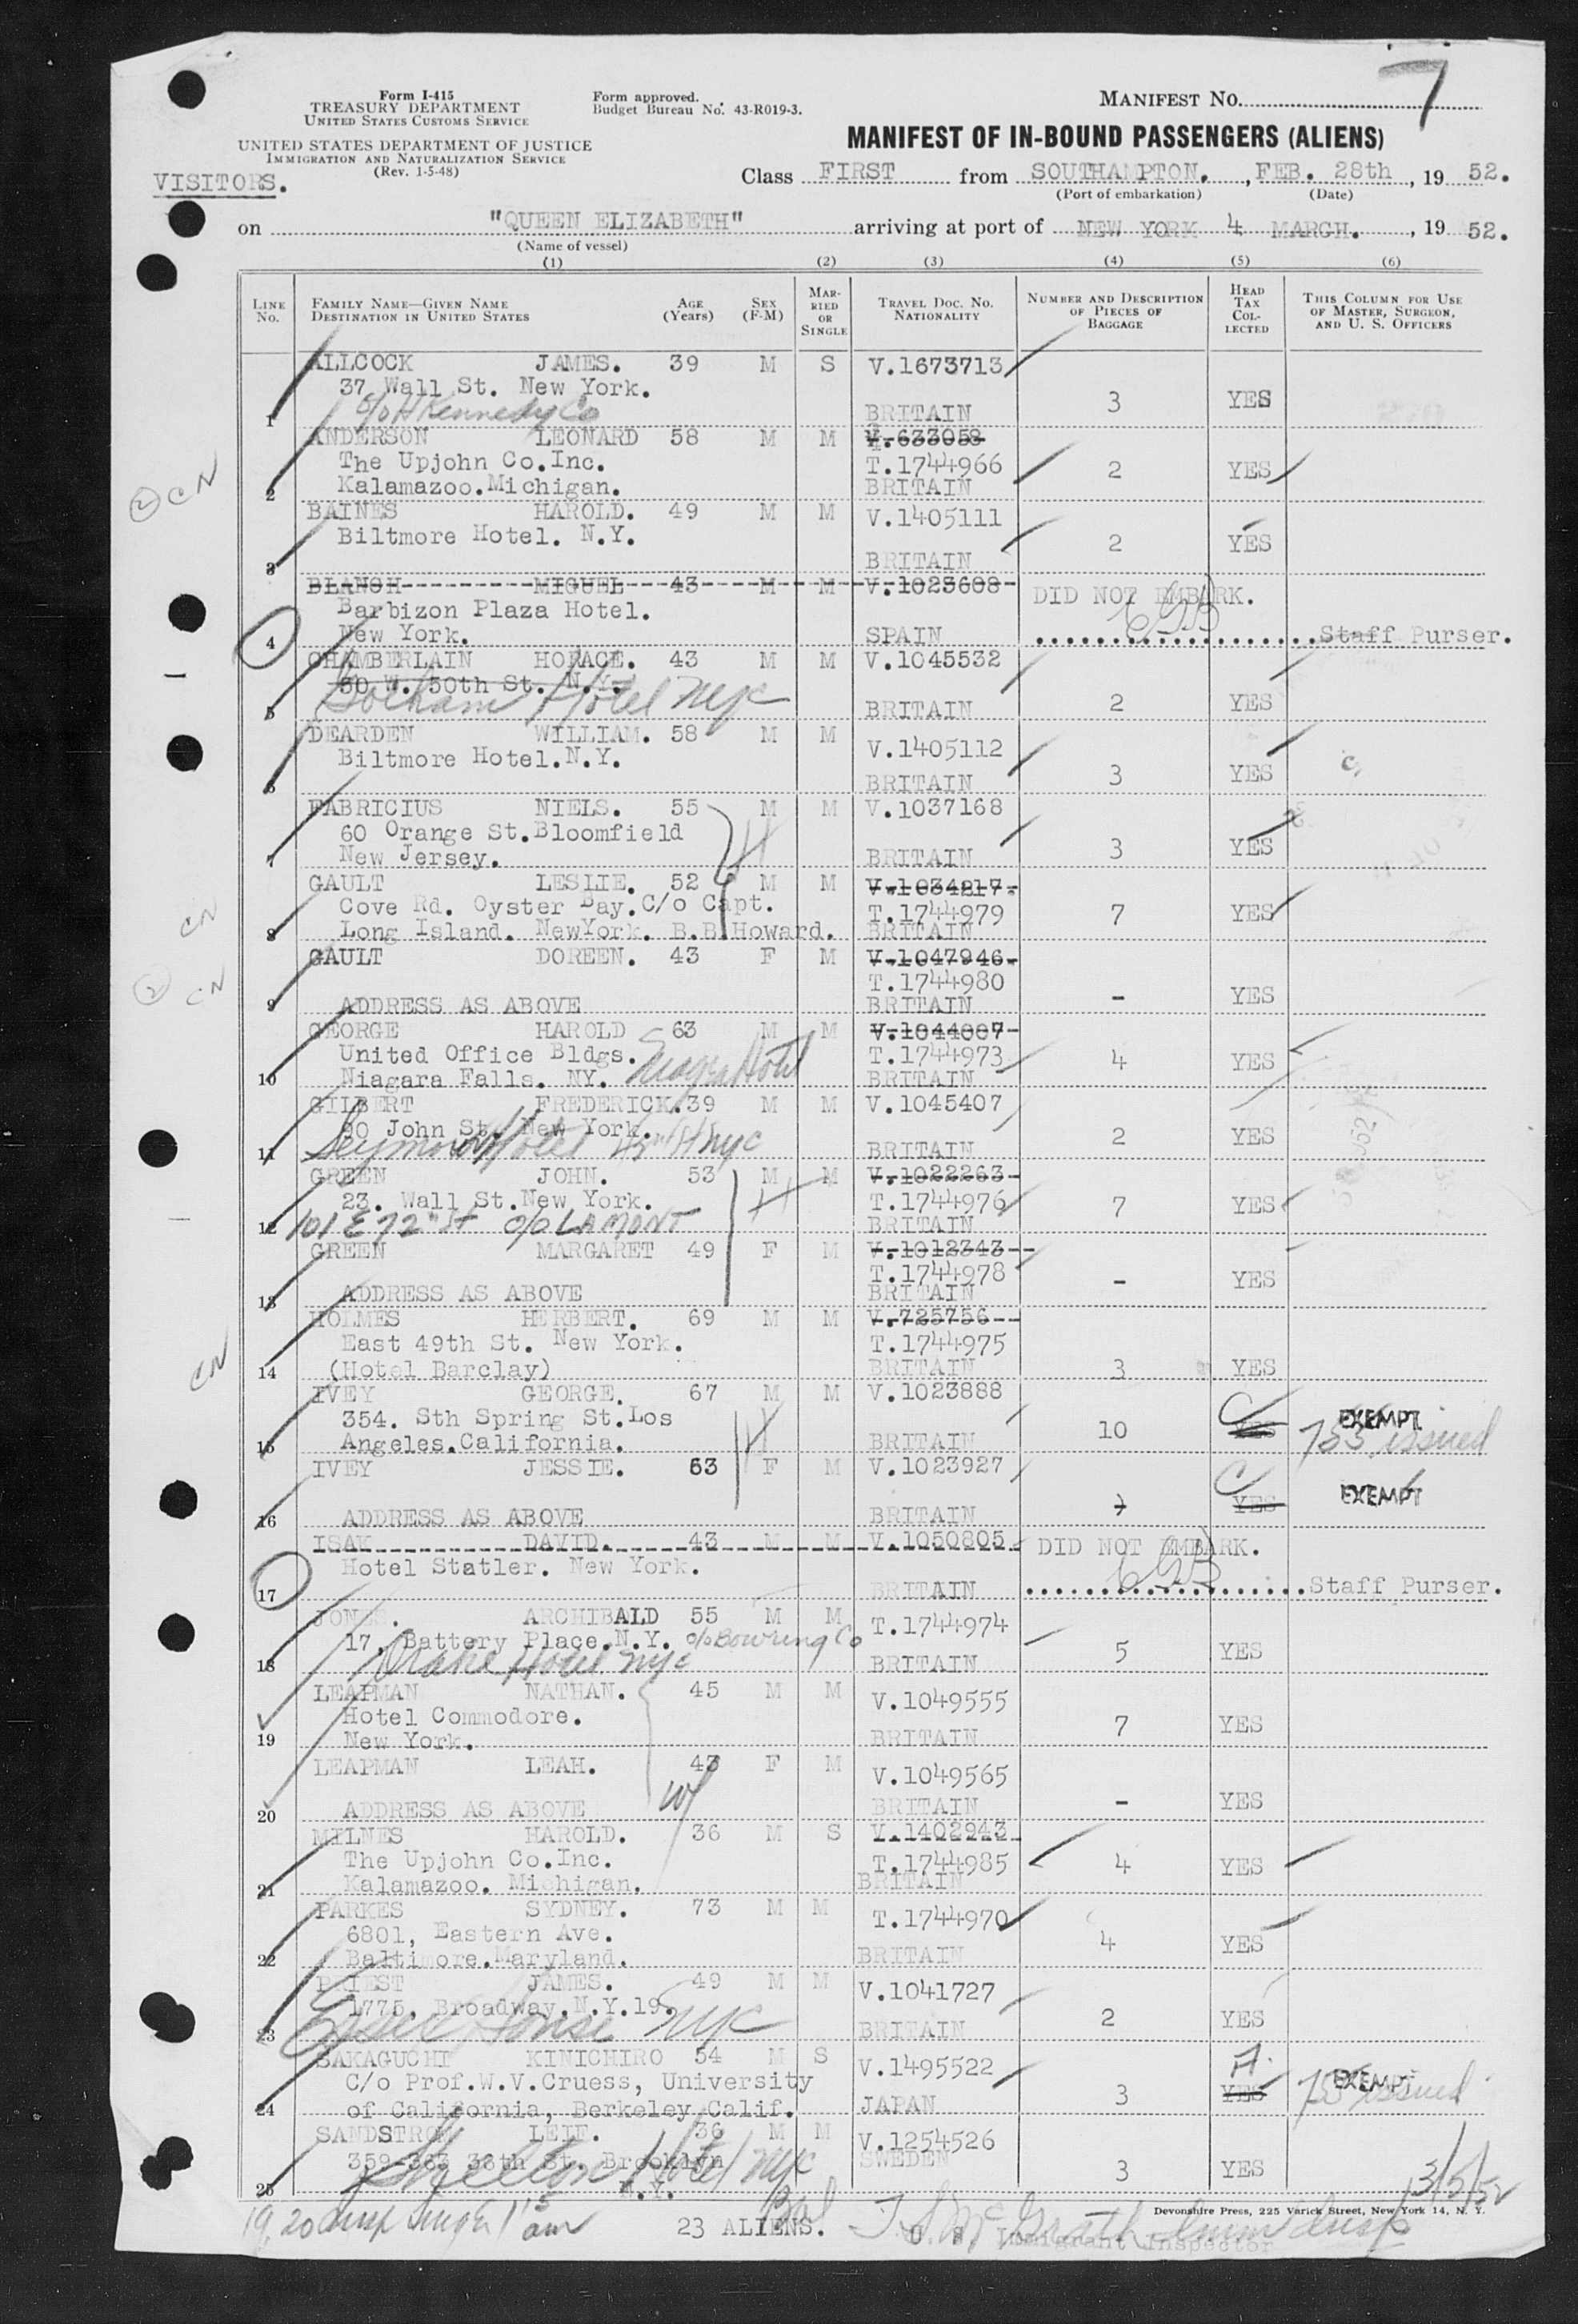 7
Form I-415
TREASURY DEPARTMENT
UNITED STATES CUSTOMS SERVICE
UNITED STATES DEPARTMENT OF JUSTICE
IMMIGRATION AND NATURALIZATION SERVICE
(Rev. 1-5-48)
Form approved.
Budget Bureau No. 43-R019-3.
MANIFEST No.
MANIFEST OF IN-BOUND PASSENGERS (ALIENS)
VISITORS.
Class FIRST from SOUTHAMPTON. , FEB. 28th , 19 52.
(Port of embarkation) (Date)
on "QUEEN ELIZABETH" arriving at port of NEW YORK 4 MARCH. , 19 52.
(Name of vessel)
(1) (2) (3) (4) (5) (6)
LINE No. FAMILY NAME—GIVEN NAME DESTINATION IN UNITED STATES AGE (Years) SEX (F-M) MARRIED OR SINGLE TRAVEL DOC. NO. NATIONALITY NUMBER AND DESCRIPTION OF PIECES OF BAGGAGE HEAD TAX COLLECTED THIS COLUMN FOR USE OF MASTER, SURGEON, AND U. S. OFFICERS
ALLCOCK JAMES. 39 M S V.1673713
37 Wall St. New York.
1 c/o H Kennedy Co BRITAIN 3 YES
ANDERSON LEONARD 58 M M V.633058
The Upjohn Co.Inc. T.1744966 2 YES
2 Kalamazoo.Michigan. BRITAIN
2 CN
BAINES HAROLD. 49 M M V.1405111
Biltmore Hotel. N.Y. 2 YES
3 BRITAIN
BLANCH MIGUEL 43 M M V.1023608 DID NOT EMBARK.
Barbizon Plaza Hotel.
4 New York. SPAIN Staff Purser.
CHAMBERLAIN HORACE. 43 M M V.1045532
50 W. 50th St. N.Y.
5 Gotham Hotel NYC BRITAIN 2 YES
DEARDEN WILLIAM. 58 M M V.1405112
Biltmore Hotel.N.Y.
6 BRITAIN 3 YES
FABRICIUS NIELS. 55 M M V.1037168
60 Orange St.Bloomfield
7 New Jersey. BRITAIN 3 YES
GAULT LESLIE. 52 M M V.1034217.
Cove Rd. Oyster Bay.C/o Capt. T.1744979 7 YES
8 Long Island. NewYork. B.B.Howard. BRITAIN
CN
GAULT DOREEN. 43 F M V.1047946.
T.1744980
9 ADDRESS AS ABOVE BRITAIN - YES
2 CN
GEORGE HAROLD 63 M M V.1044007
United Office Bldgs. T.1744973 4 YES
10 Niagara Falls. NY. Hotel BRITAIN
GILBERT FREDERICK.39 M M V.1045407
80 John St. New York.
11 Seymour Hotel 45th St NYC BRITAIN 2 YES
GREEN JOHN. 53 M M V.1022263
23. Wall St.New York. T.1744976 7 YES
12 101 E 72nd St c/o LAMONT BRITAIN
GREEN MARGARET 49 F M V.1012343
T.1744978
13 ADDRESS AS ABOVE BRITAIN - YES
HOLMES HERBERT. 69 M M V.725756
East 49th St. New York. T.1744975
14 (Hotel Barclay) BRITAIN 3 YES
CN
IVEY GEORGE. 67 M M V.1023888
354. Sth Spring St.Los 10 YES C EXEMPT
15 Angeles.California. BRITAIN issued
IVEY JESSIE. 63 F M V.1023927
C YES EXEMPT
16 ADDRESS AS ABOVE BRITAIN
ISAK DAVID. 43 M M V.1050805 DID NOT EMBARK.
Hotel Statler. New York.
17 BRITAIN Staff Purser.
JONES. ARCHIBALD 55 M M T.1744974
17, Battery Place.N.Y. c/o Bowring Co
18 Drake Hotel NYC BRITAIN 5 YES
LEAPMAN NATHAN. 45 M M V.1049555
Hotel Commodore.
19 New York. BRITAIN 7 YES
LEAPMAN LEAH. 43 F M V.1049565
20 ADDRESS AS ABOVE BRITAIN - YES
MILNES HAROLD. 36 M S V.1402943
The Upjohn Co.Inc. T.1744985 4 YES
21 Kalamazoo. Michigan. BRITAIN
PARKES SYDNEY. 73 M M T.1744970
6801, Eastern Ave. 4 YES
22 Baltimore.Maryland. BRITAIN
PRIEST JAMES. 49 M M V.1041727
1775, Broadway.N.Y.19. 2 YES
23 Essex House NYC BRITAIN
SAKAGUCHI KINICHIRO 54 M S V.1495522 A.
C/o Prof.W.V.Cruess, University 3 YES EXEMPT issued
24 of California, Berkeley Calif. JAPAN
SANDSTROM LEIF. 36 M M V.1254526
359-363 36th St. Brooklyn SWEDEN 3 YES
25 N.Y. Shelton Hotel NYC
3/5/52
Devonshire Press, 225 Varick Street, New York 14, N. Y.
19, 20 am
23 ALIENS. McGrath
U. S. Immigrant Inspector